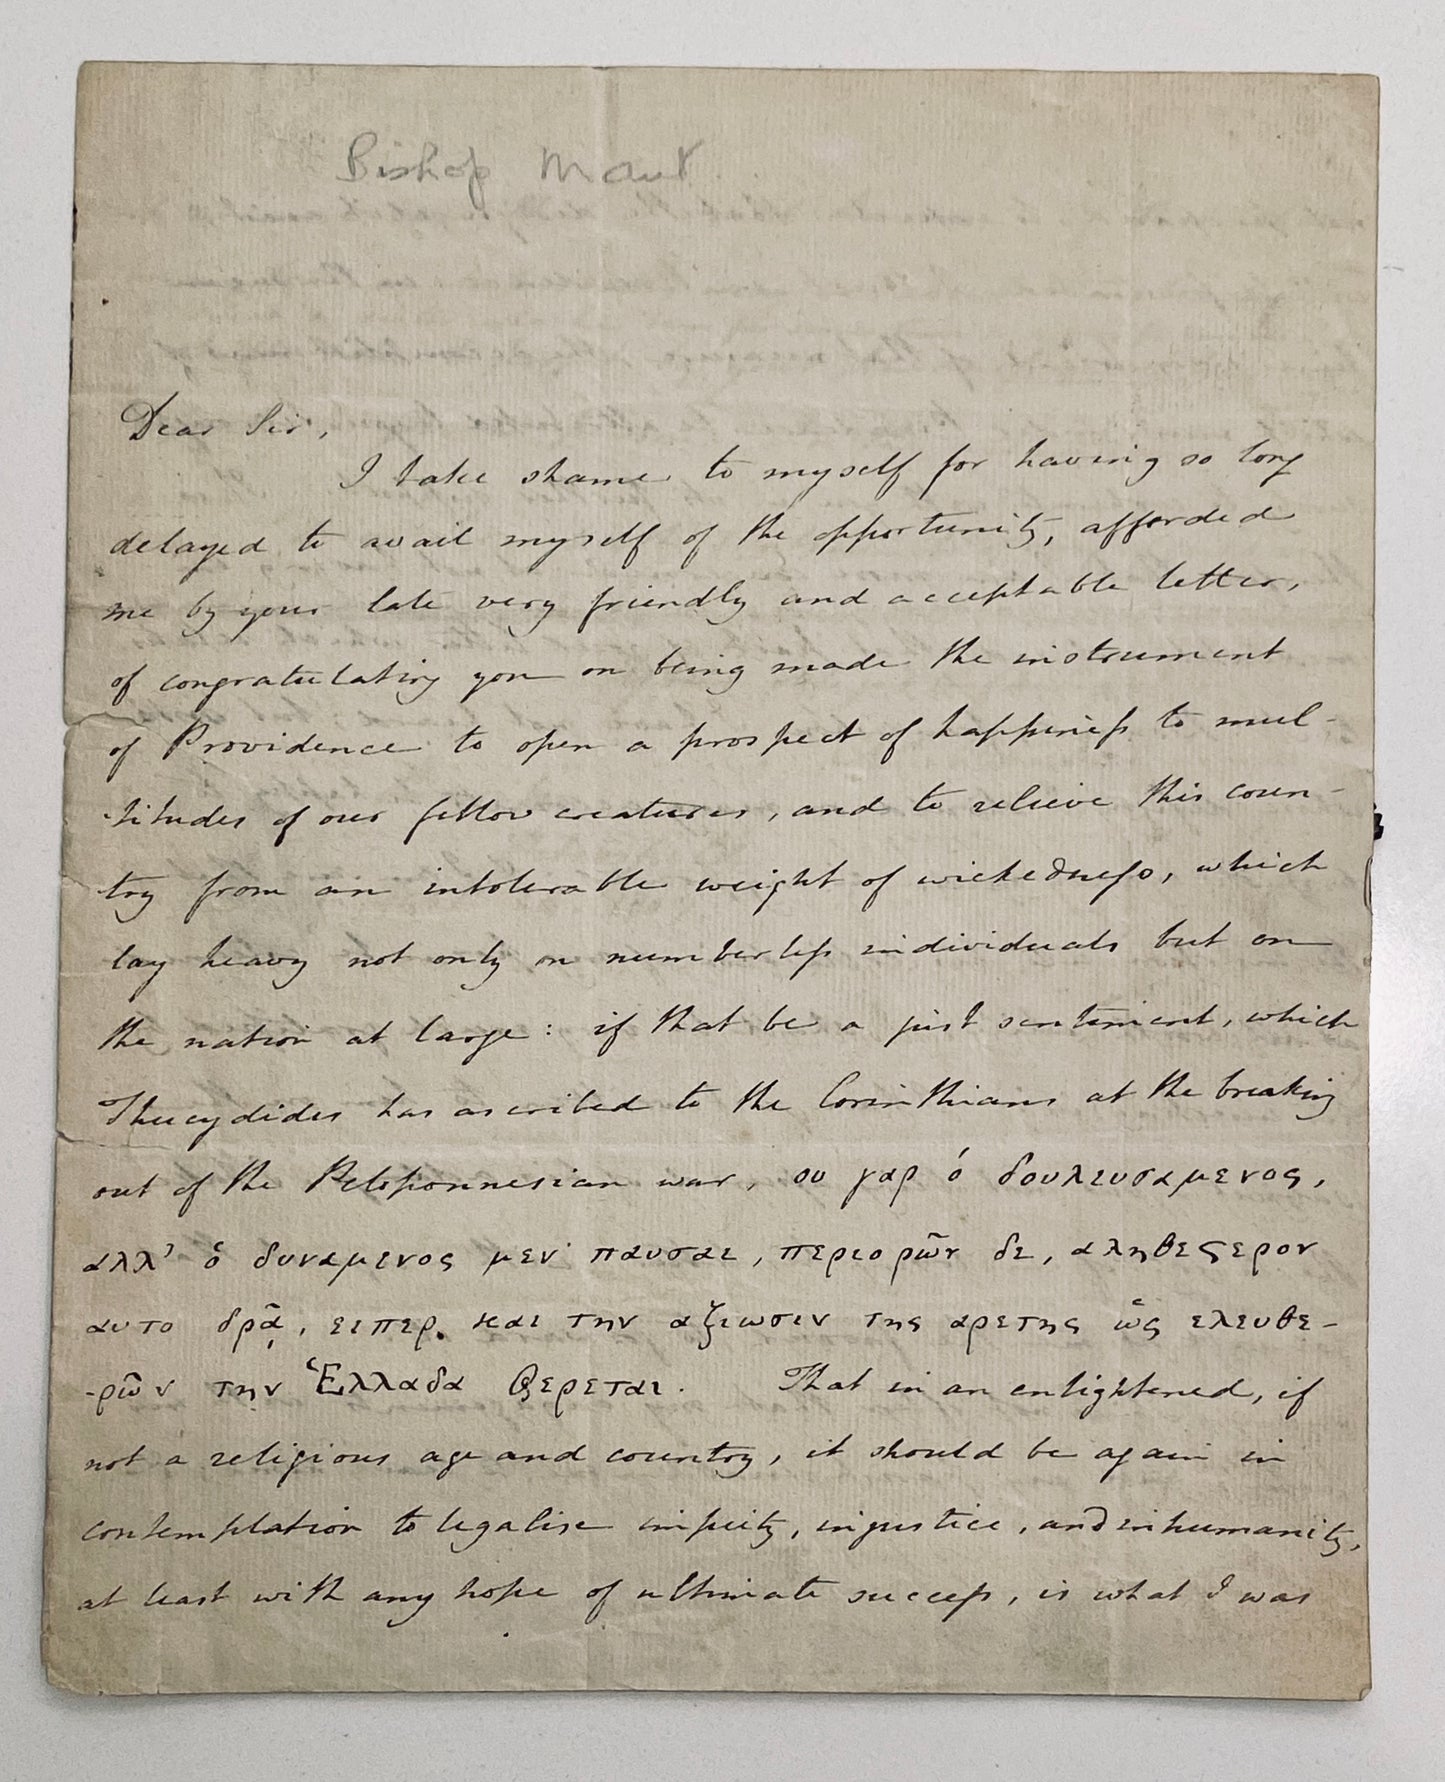 Bishop Mant
Dear Sir,
I take shame to myself for having so long
delayed to avail myself of the opportunity, afforded
me by your late very friendly and acceptable letter,
of congratulating you on being made the instrument
of Providence to open a prospect of happineſs to mul-
-titudes of our fellow creatures, and to relieve this coun-
try from an intolerable weight of wickedneſs, which
lay heavy not only on numberleſs individuals but on
the nation at large: if that be a just sentiment, which
Thucydides has ascribed to the Corinthians at the breaking
out of the Peloponnesian war, ου γαρ ὁ δουλευσαμενος,
αλλ' ὁ δυναμενος μεν παυσαι, περιορῶν δε, αληθεϛερον
αυτο δρᾷ, ειπερ και την αξιωσιν της αρετης ὡς ελευθε-
-ρῶν την Ἑλλαδα φερεται. That in an enlightened, if
not a religious age and country, it should be again in
contemplation to legalise impiety, injustice, and inhumanity,
at least with any hope of ultimate succeſs, is what I was